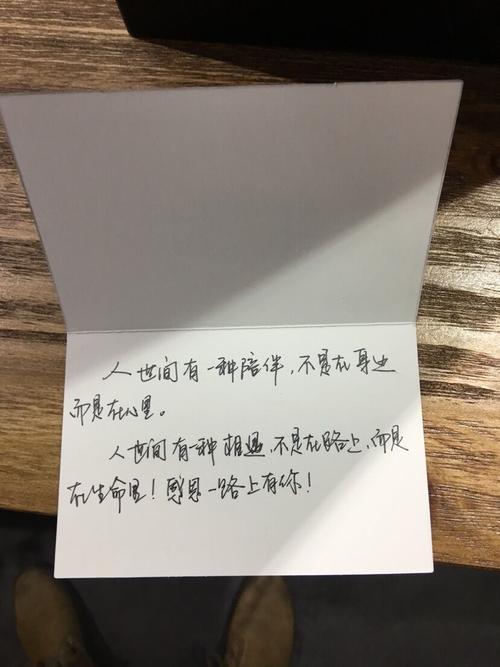 人世间有一种陪伴，不是在身边
而是在心里。
人世间有一种相遇，不是在路上，而是
在生命里！感恩一路上有你！